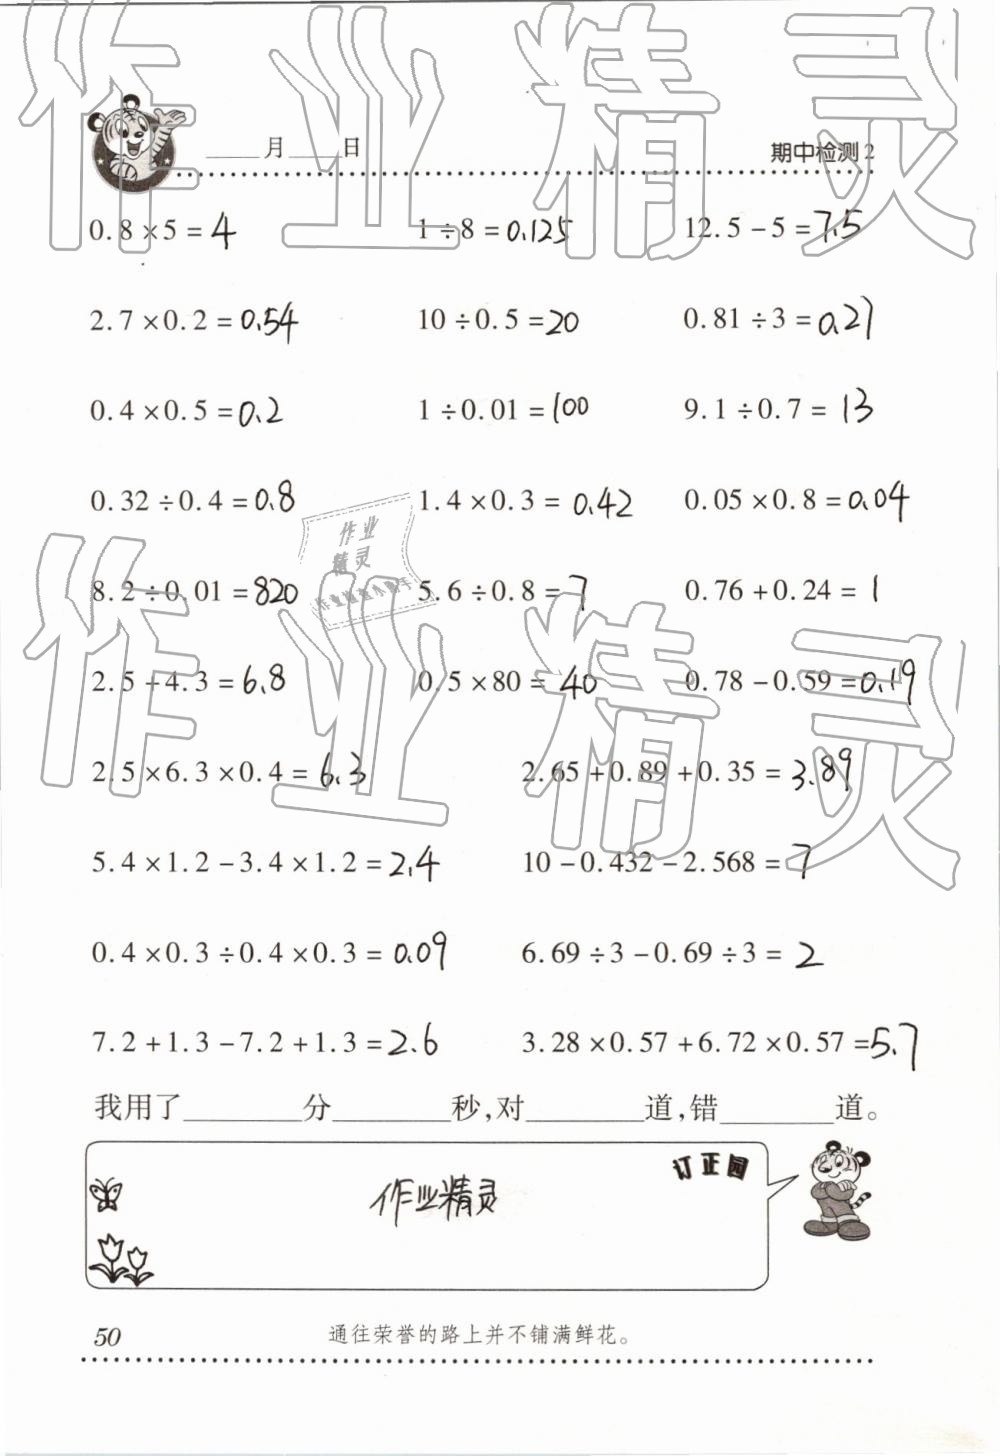 月 日 期中检测2
0.8×5=4 1÷8=0.125 12.5-5=7.5
2.7×0.2=0.54 10÷0.5=20 0.81÷3=0.27
0.4×0.5=0.2 1÷0.01=100 9.1÷0.7=13
0.32÷0.4=0.8 1.4×0.3=0.42 0.05×0.8=0.04
作业
精灵
8.2÷0.01=820 5.6÷0.8=7 0.76+0.24=1
2.5+4.3=6.8 0.5×80=40 0.78-0.59=0.19
2.5×6.3×0.4=6.3 2.65+0.89+0.35=3.89
5.4×1.2-3.4×1.2=2.4 10-0.432-2.568=7
0.4×0.3÷0.4×0.3=0.09 6.69÷3-0.69÷3=2
7.2+1.3-7.2+1.3=2.6 3.28×0.57+6.72×0.57=5.7
我用了____分____秒,对____道,错____道。
订正园
作业精灵
50 通往荣誉的路上并不铺满鲜花。
作业精灵
作业精灵